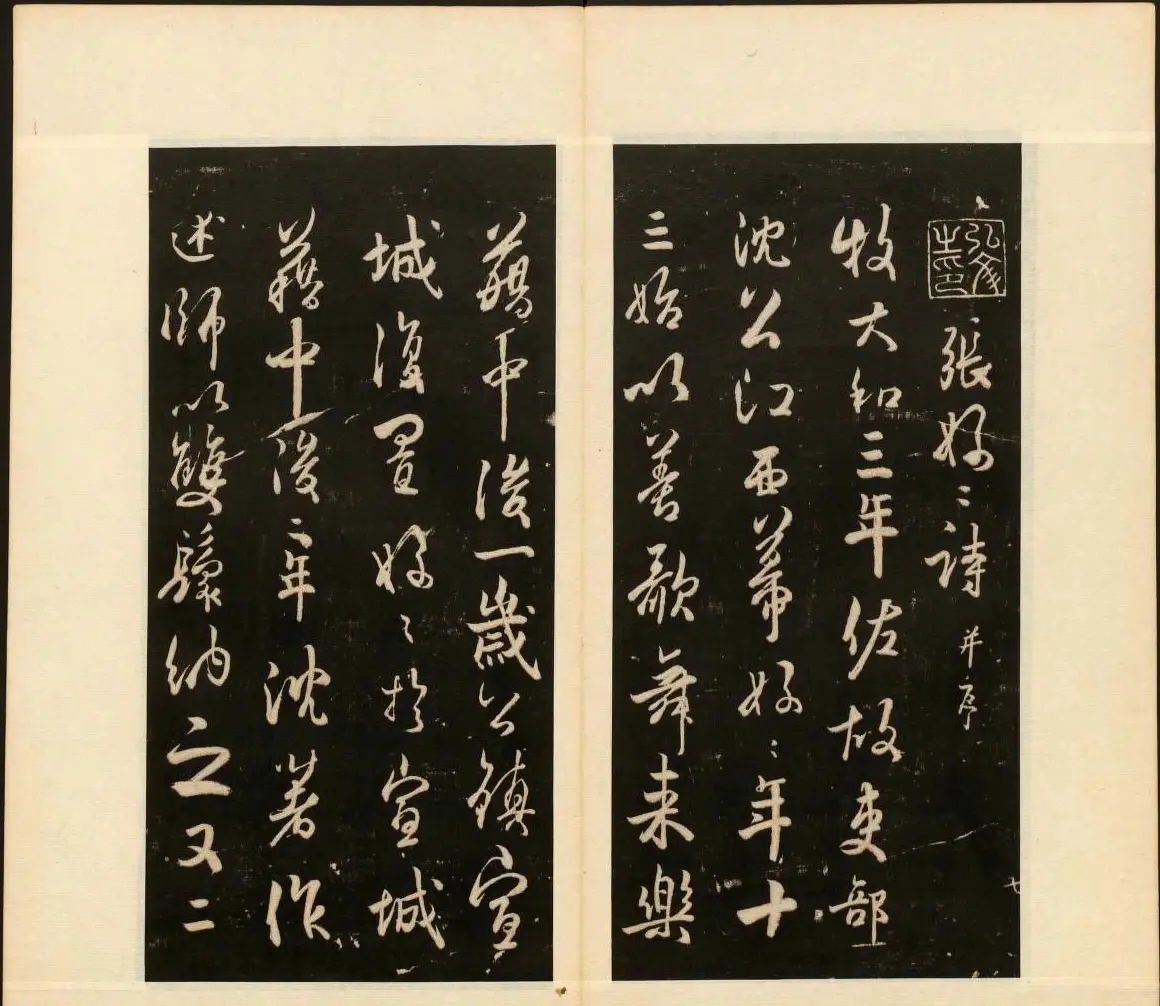 弘文之印
張好〻詩 并序
牧大和三年佐故吏部
沈公江西幕好〻年十
三始以善歌舞来樂
籍中後一歲公鎮宣
城復置好〻於宣城
籍中後二年沈著作
述師以雙鬟納之又二
七